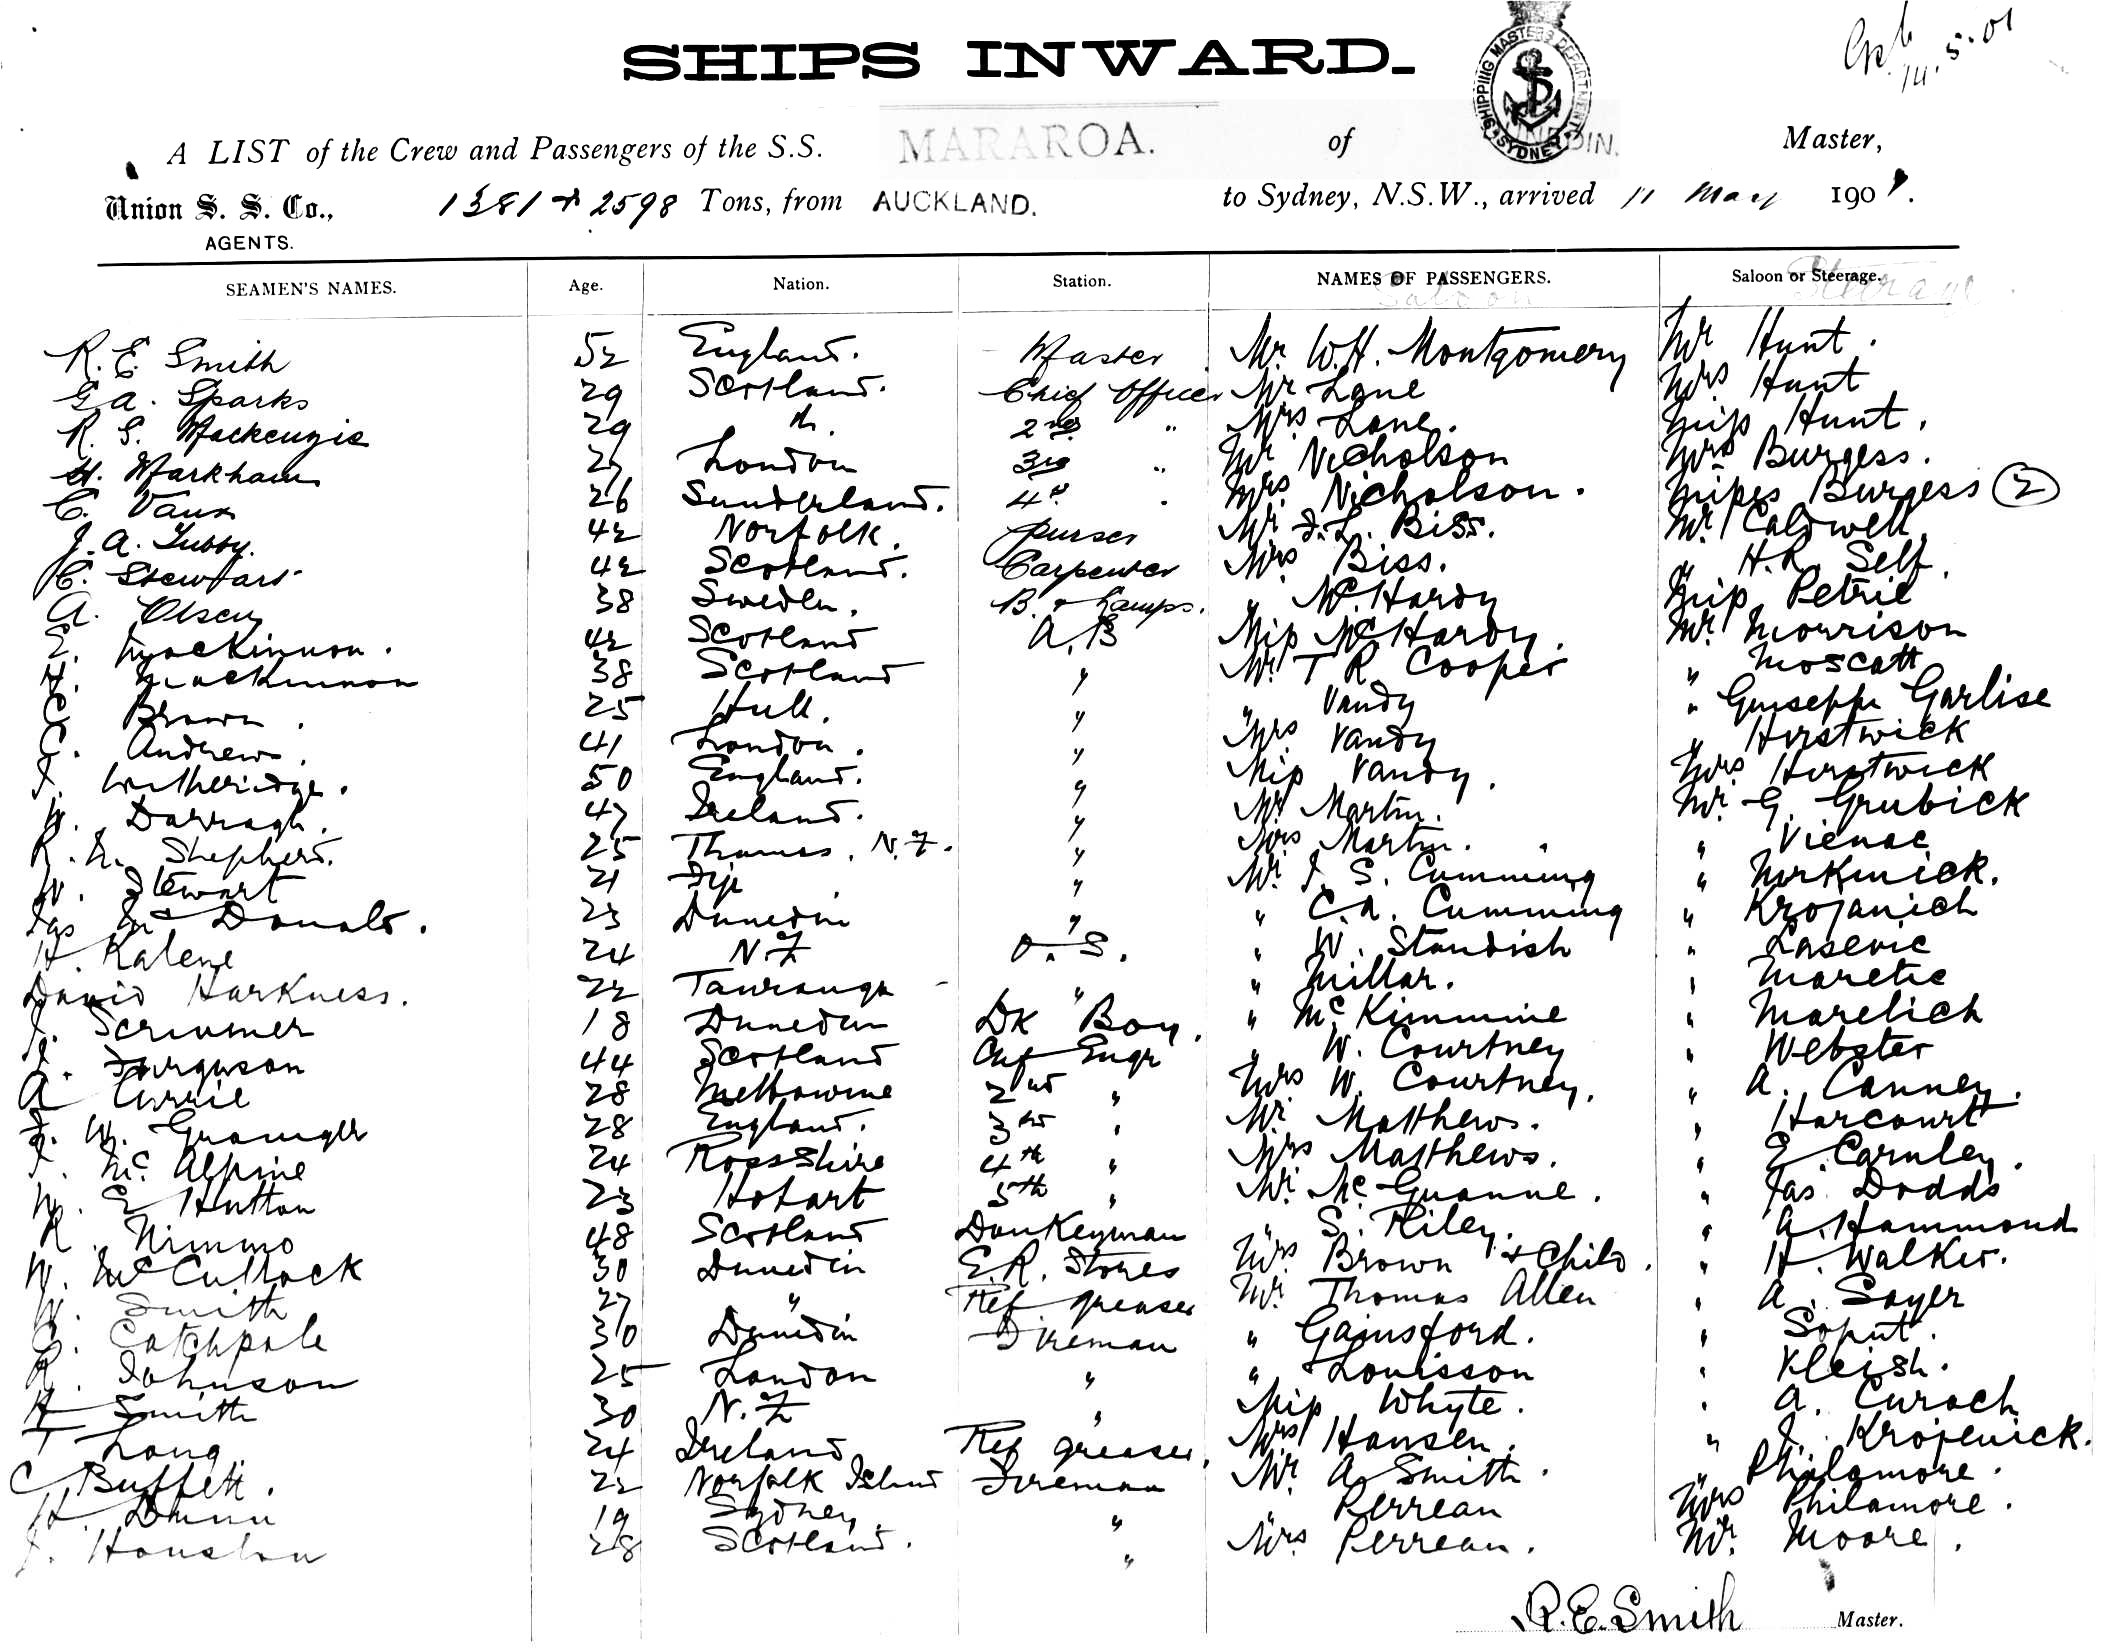 SHIPS INWARD.
14.5.01
SHIPPING MASTERS DEPARTMENT SYDNEY
A LIST of the Crew and Passengers of the S.S. MARAROA. of DUNEDIN. Master,
Union S. S. Co., 1381 + 2598 Tons, from AUCKLAND. to Sydney, N.S.W., arrived 11 May 1901.
AGENTS.
SEAMEN'S NAMES. Age. Nation. Station. NAMES OF PASSENGERS. Saloon or Steerage.
Saloon Steerage
R. E. Smith 52 England. Master Mr. W.H. Montgomery Mr Hunt.
G. A. Sparks 29 Scotland. Chief Officer Mr Lane Mrs Hunt
R. S. Mackenzie 29 do. 2nd " Mrs Lane. Miss Hunt.
H. Markham 27 London 3rd " Mr Nicholson Mrs Burgess.
C. Vaux 26 Sunderland. 4th " Mrs Nicholson. Misses Burgess (2)
J. A. Tubby. 42 Norfolk. Purser Mr J. L. Biss. Mr Caldwell
C. Stewart 42 Scotland. Carpenter Mrs Biss. " H.R. Self.
A. Olsen 38 Sweden. B. & Lamps. " McHardy Miss Petrie
E. Mackinnon. 42 Scotland A.B Miss McHardy. Mr. Morrison
H. Mackinnon 38 Scotland " Mr. T R Cooper " Moscatt
C. Brown. 25 Hull. " " Vandy " Guiseppe Garlise
C. Andrews. 41 London. " Mrs Vandy " Hirstwick
J. Witheridge. 50 England. " Miss Vandy. Mrs Hirstwick
W. Darragh. 47 Ireland. " Mr Martin. Mr. G. Grubick
R. N. Shepherd. 25 Thames. N.Z. " Mrs Martin. " Vienac
W. Stewart 21 Fiji " Mr. J. S. Cumming " Mrkinick.
Jas McDonald. 23 Dunedin " " C.A. Cumming " Krojanich
H. Kalene 24 N.Z O.S. " W. Standish " Lasevic
David Harkness. 22 Tauranga " " Millar. " Maretic
J. Scrivmer 18 Dunedin Dk Boy. " McKimmine " Marelich
J. Ferguson 44 Scotland Chf Engr " W. Courtney " Webster
A Currie 28 Melbourne 2nd " Mrs W. Courtney. " A. Canney.
F. W. Grainger 28 England. 3rd " Mr Matthews. " Harcourt
J. McAlpine 24 Ross Shire 4th " Mrs Matthews. " E. Carnley.
W. E Hutton 23 Hobart 5th " Mr. McGuanne. " Jas Dodds
R. Nimmo 48 Scotland Donkeyman " S. Riley. " A. Hammond
W. McCullock 30 Dunedin E.R. Stores Mrs Brown & Child. " H. Walker.
W. Smith 27 " Ref greaser Mr. Thomas Allen " A. Sayer
C. Catchpole 30 Dunedin Fireman " Gainsford. " Soput.
R. Johnson 25 London " " Louisson " Kleish.
H Smith 30 N.Z " Miss Whyte. " A. Curach
T Long. 24 Ireland Ref greaser. Mrs Hansen. " J. Krojenick.
C Buffett. 22 Norfolk Island Fireman Mr. A Smith. " Philamore.
H. Dunn 19 Sydney. " " Perreau Mrs Philamore.
J. Houston 28 Scotland. " Mrs. Perreau. Mr. Moore.
R. E. Smith Master.